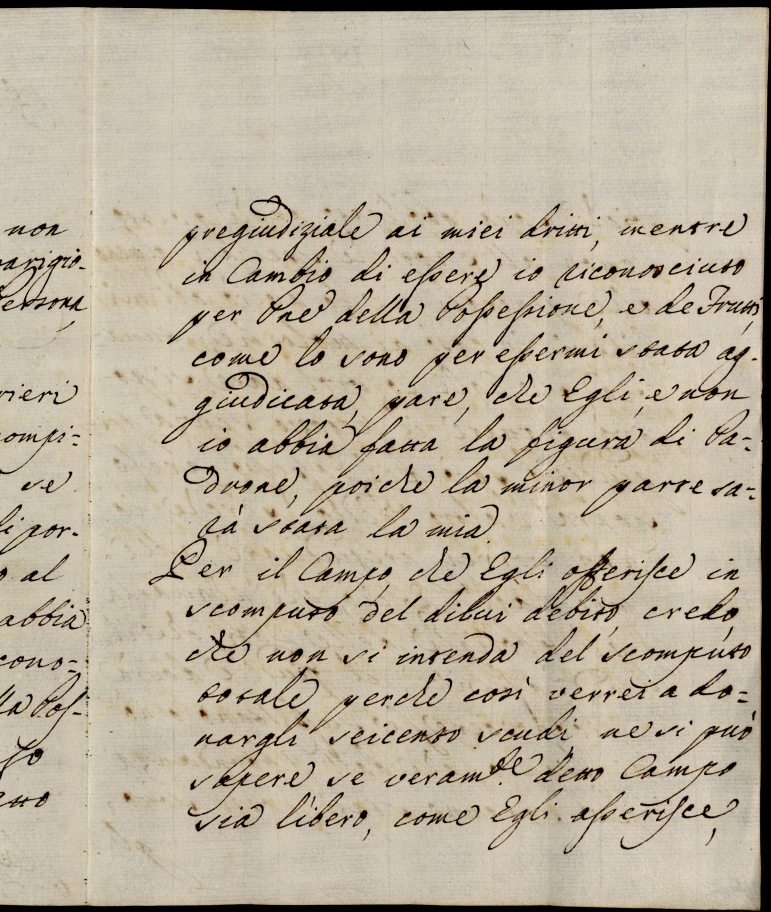 non
parigio-
Persona,
rieri
compi:
se
di por-
o al
abbia
cono=
lla Pos-
so
etto
pregiudiziale ai miei dritti, mentre
in Cambio di essere io riconosciuto
per Pñe della Possessione, e de Frutti,
come lo sono per essermi stata ag-
giudicata, pare, che Egli, e non
io abbia fatta la figura di Pa-
drone, poiche la minor parte sa-
rà stata la mia.
Per il Campo che Egli offerisce in
scomputo del dilui debito, credo,
che non si intenda del scomputo
totale perche così verrei a do=
nargli seicento scudi ne si può
sapere se veram.te detto Campo
sia libero, come Egli asserisce,